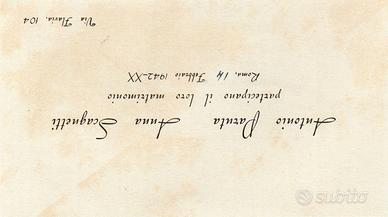 Antonio Paruta Anna Scagnetti
partecipano il loro matrimonio
Roma, 14 Febbraio 1942-XX
Via Flavia, 104
subito